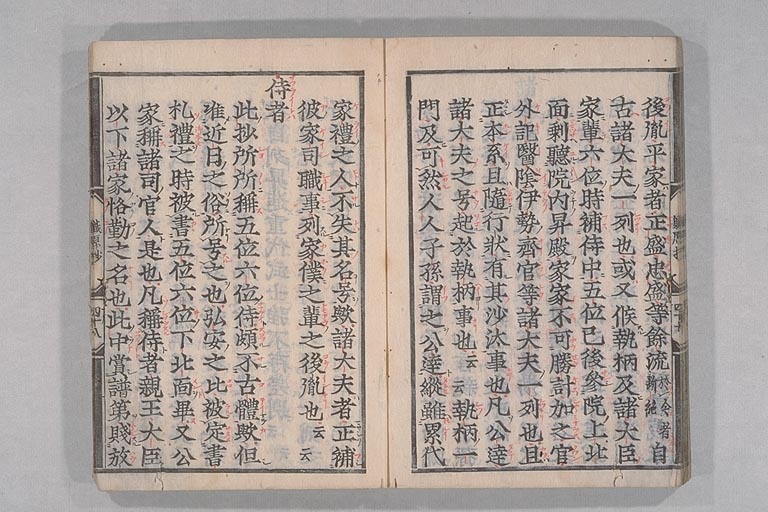 後胤平家者正盛忠盛等餘流於今者断絶自
古諸大夫一列也或又候執柄及諸大臣
家軰六位時補侍中五位已後參院上北
面剰聽院内昇殿家家不可勝計加之官
外記醫陰伊勢齊官等諸大夫一列也且
正本系且隨行狀有其沙汰事也凡公達
諸大夫之号起於執柄事也云云執柄一
門及可然人人子孫謂之公達縱雖累代
家禮之人不失其名号歟諸大夫者正補
彼家司職事列家僕之軰之後胤也云云
侍者
此抄所所稱五位六位侍頗不古體歟但
准近日之俗所号之也弘安之比被定書
札禮之時被書五位六位下北面畢又公
家稱諸司官人是也凡稱侍者親王大臣
以下諸家恪勤之名也此中賞譜第賤放
職原抄
四十八